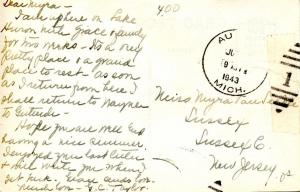 Dear Myra -
I am up here on Lake
Huron with Grace & family
for two weeks - It's a very
pretty place & a grand
place to rest. As soon
as I return from here I
shall return to Wayne
to
Hope you are well and
having a nice summer.
I enjoyed you Easter letter
will write you when I
get back. Love and
much love - J. C. Taylor.
400
AU
JUL
1943
MICH.
Miss Myra
Sussex
Sussex C.
New Jersey